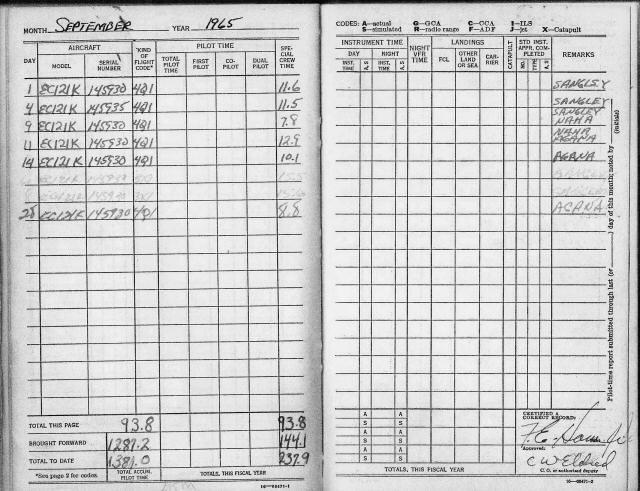 MONTH SEPTEMBER YEAR 1965
AIRCRAFT
PILOT TIME
DAY
MODEL
SERIAL NUMBER
KIND OF FLIGHT CODE*
TOTAL PILOT TIME
FIRST PILOT
CO-PILOT
DUAL PILOT
SPECIAL CREW TIME
1 EC121K 145930 4Q1 11.6
4 EC121K 145935 4Q1 11.5
9 EC121K 145930 4Q1 7.9
11 EC121K 145930 4Q1 12.9
14 EC121K 145930 4Q1 10.1
EC121K 4Q1
EC121K
EC121K 145930 4Q1 8.8
TOTAL THIS PAGE 93.8 93.8
BROUGHT FORWARD 1287.2 144.1
TOTAL TO DATE 1381.0 237.9
*See page 2 for codes.
TOTAL ACCUM. PILOT TIME
TOTALS, THIS FISCAL YEAR
16—68471-1
CODES: A—actual G—GCA C—CCA I—ILS
S—simulated R—radio range F—ADF J—jet X—Catapult
INSTRUMENT TIME
DAY
NIGHT
INST. TIME
A S
INST. TIME
A S
NIGHT VFR TIME
LANDINGS
FCL
OTHER LAND OR SEA
CAR-RIER
CATAPULT
STD INST. APPR. COM-PLETED
NO.
TYPE
A S
REMARKS
SANGLEY
SANGLEY
SANGLEY
NAHA
NAHA
AGANA
AGANA
SANGLEY
AGANA
Pilot-time report submitted through last (or ) day of this month; noted by (initials)
A A
S S
A A
S S
A A
S S
CERTIFIED A CORRECT RECORD:
Approved:
C W Eldred
C. O. or authorized deputy
TOTALS, THIS FISCAL YEAR
16—68471-2